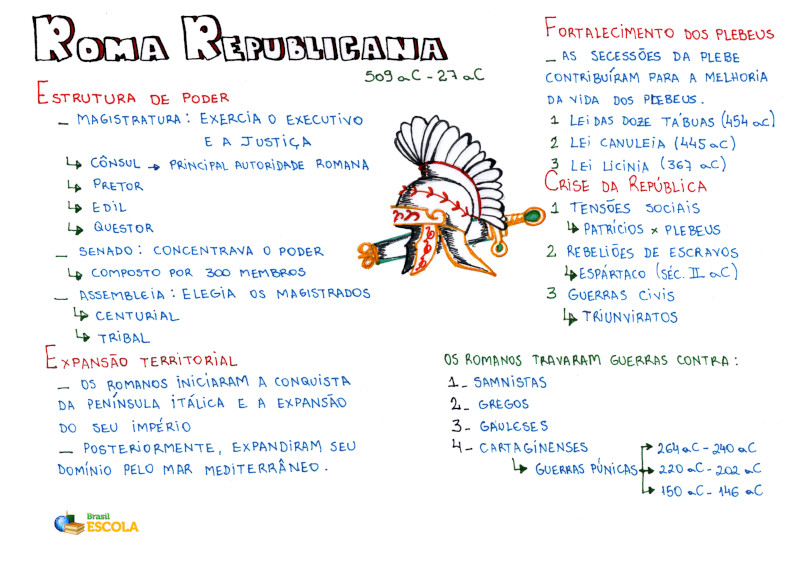 ROMA REPUBLICANA
509 aC - 27 aC
ESTRUTURA DE PODER
_ MAGISTRATURA: EXERCIA O EXECUTIVO
E A JUSTIÇA
↳ CÔNSUL → PRINCIPAL AUTORIDADE ROMANA
↳ PRETOR
↳ EDIL
↳ QUESTOR
_ SENADO: CONCENTRAVA O PODER
↳ COMPOSTO POR 300 MEMBROS
_ ASSEMBLEIA: ELEGIA OS MAGISTRADOS
↳ CENTURIAL
↳ TRIBAL
EXPANSÃO TERRITORIAL
_ OS ROMANOS INICIARAM A CONQUISTA
DA PENÍNSULA ITÁLICA E A EXPANSÃO
DO SEU IMPÉRIO
_ POSTERIORMENTE, EXPANDIRAM SEU
DOMÍNIO PELO MAR MEDITERRÂNEO.
FORTALECIMENTO DOS PLEBEUS
_ AS SECESSÕES DA PLEBE
CONTRIBUÍRAM PARA A MELHORIA
DA VIDA DOS PLEBEUS.
1 LEI DAS DOZE TÁBUAS (454 aC)
2 LEI CANULEIA (445 aC)
3 LEI LICÍNIA (367 aC)
CRISE DA REPÚBLICA
1 TENSÕES SOCIAIS
↳ PATRÍCIOS × PLEBEUS
2 REBELIÕES DE ESCRAVOS
↳ ESPÁRTACO (SÉC. II aC)
3 GUERRAS CIVIS
↳ TRIUNVIRATOS
OS ROMANOS TRAVARAM GUERRAS CONTRA:
1 - SAMNISTAS
2 - GREGOS
3 - GAULESES
4 - CARTAGINENSES
↳ GUERRAS PÚNICAS
→ 264 aC - 240 aC
→ 220 aC - 202 aC
→ 150 aC - 146 aC
Brasil
ESCOLA